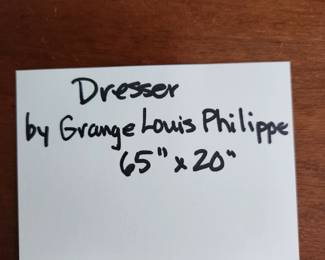 Dresser
by Grange Louis Philippe
65" x 20"